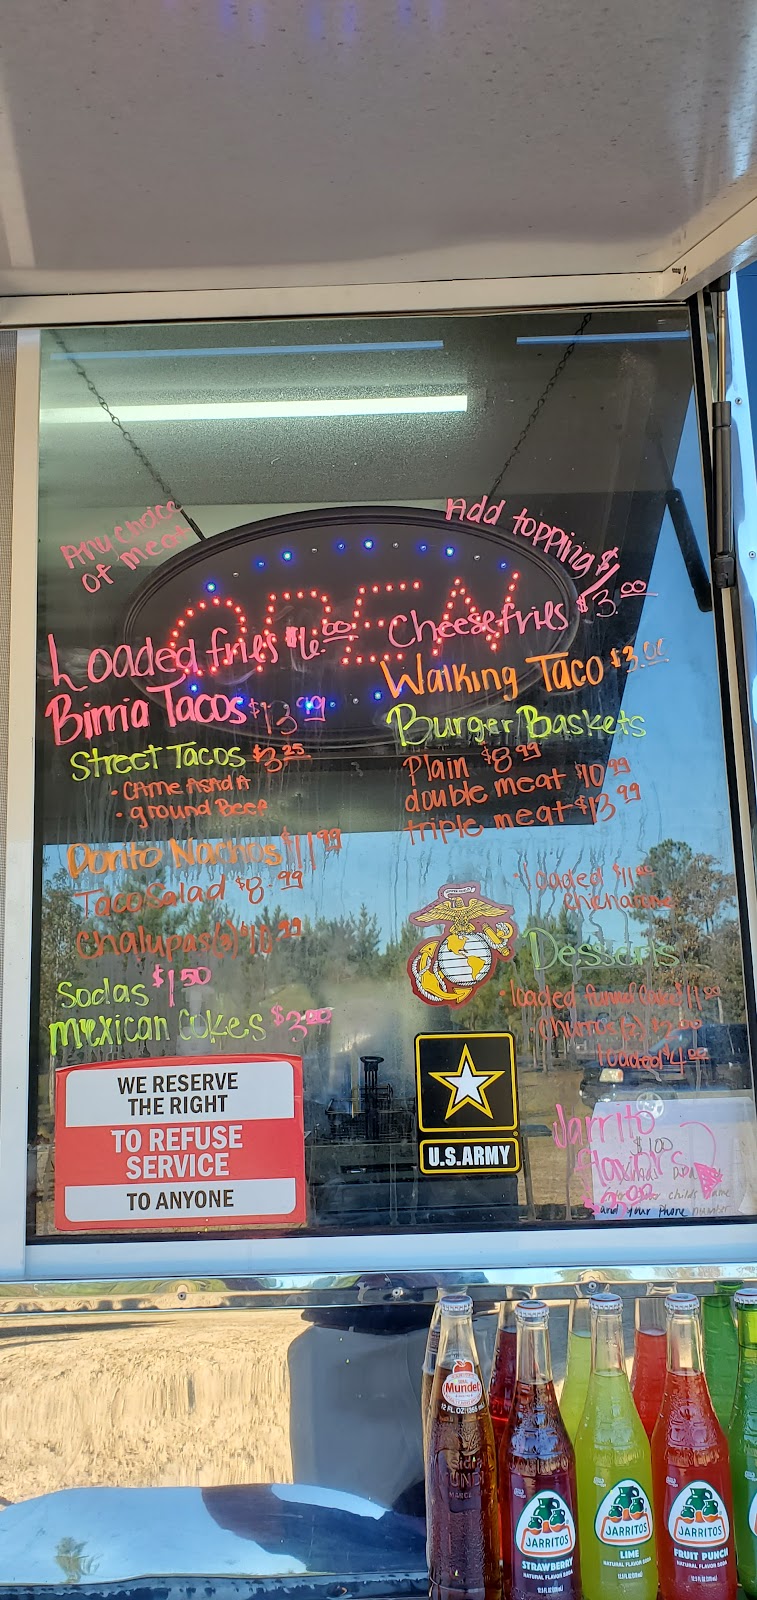 Any choice
of meat
Add topping $1
OPEN
Loaded fries $6.00
Cheese fries $3.00
Birria Tacos $13.99
Walking Taco $3.00
Street Tacos $3.25
• carne Asada
• ground Beef
Burger Baskets
Plain $8.99
double meat $10.99
triple meat $13.99
Dorito Nachos $11.99
Taco Salad $8.99
Chalupas $10.99
• loaded $11.00
Sodas $1.50
mexican Cokes $3.00
Desserts
• loaded funnel cake $11.00
loaded $4.00
WE RESERVE
THE RIGHT
TO REFUSE
SERVICE
TO ANYONE
U.S.ARMY
Jarrito
flavors
$1.00
childs name
and your phone number
Mundet
12 FL.OZ
JARRITOS
STRAWBERRY
NATURAL FLAVOR SODA
JARRITOS
LIME
NATURAL FLAVOR SODA
JARRITOS
FRUIT PUNCH
NATURAL FLAVOR SODA